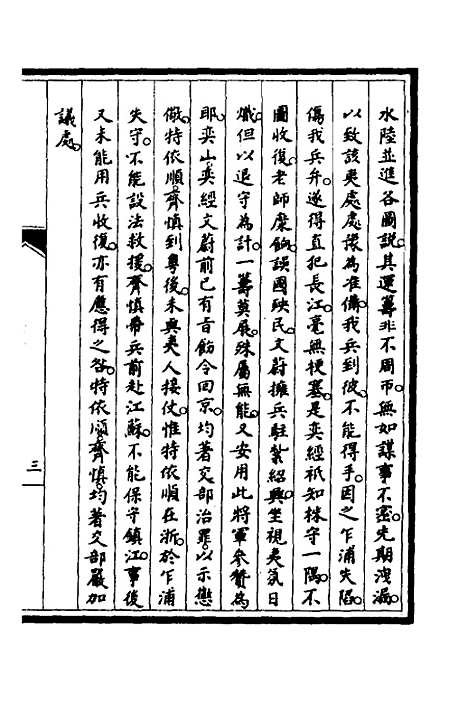 水陸並進各圖說其運籌非不周帀無如謀事不密先期洩漏
以致該夷處處豫為准備我兵到彼不能得手因之乍浦失陷
傷我兵弁遂得直把長江毫無梗塞是奕經祇知株守一隅不
圖收復老師糜餉誤國殃民文蔚擁兵駐紮紹興坐視夷氛日
熾但以退守為計一籌莫展殊屬無能又安用此將軍參贊為
耶奕山奕經文蔚前已有旨飭令回京均著交部治罪以示懲
儆特依順齊慎到粵後未與夷人接仗惟特依順在浙於乍浦
失守不能設法救援齊慎帶兵前赴江蘇不能保守鎮江事後
又未能用兵收復亦有應得之咎特依順齊慎均著交部嚴加
議處
三